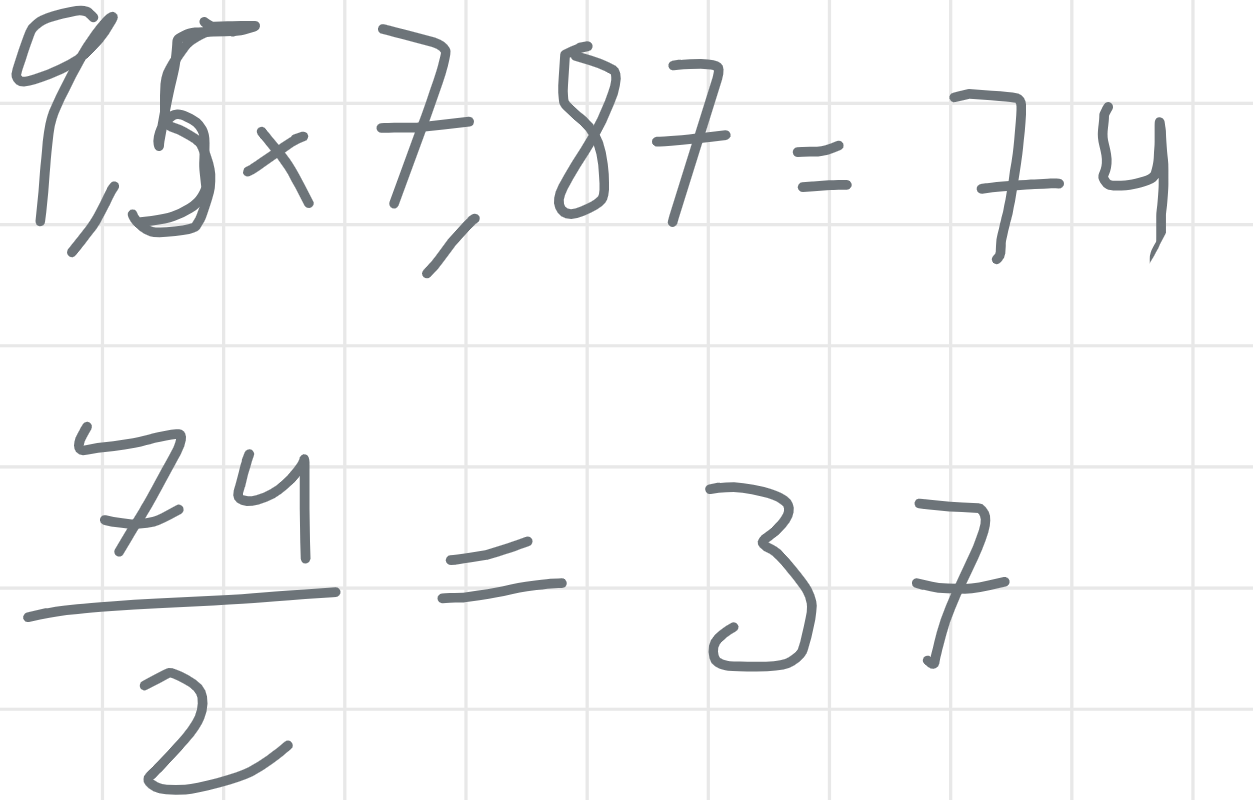 9,5 × 7,87 = 74
74
2
= 37